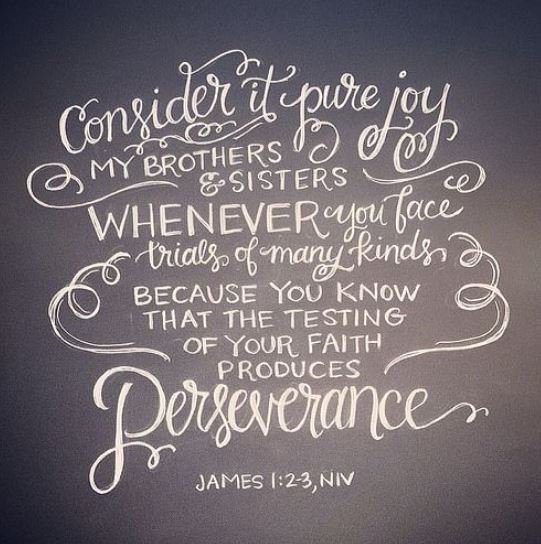 Consider it pure joy
MY BROTHERS
& SISTERS
WHENEVER you face
trials of many kinds,
BECAUSE YOU KNOW
THAT THE TESTING
OF YOUR FAITH
PRODUCES
Perseverance
JAMES 1:2-3, NIV